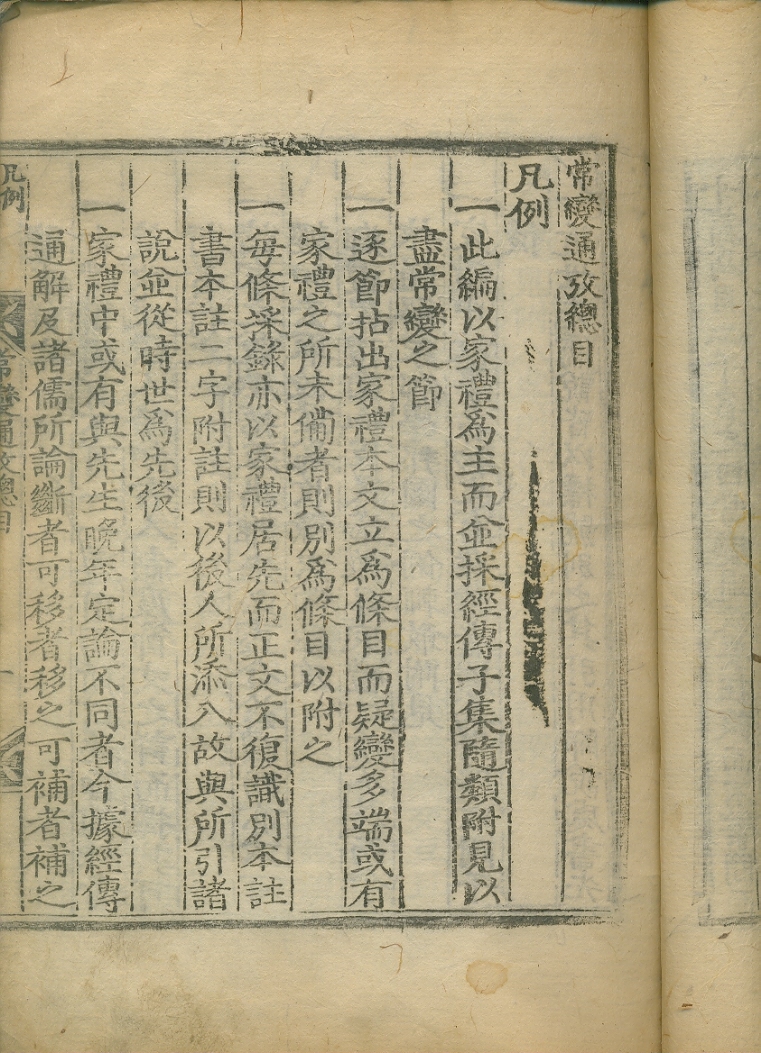 常變通攷總目
凡例
一此編以家禮爲主而並採經傳子集隨類附見以
盡常變之節
一逐節拈出家禮本文立爲條目而疑變多端或有
家禮之所未備者則別爲條目以附之
一每條採錄亦以家禮居先而正文不復識別本註
書本註二字附註則以後人所添入故與所引諸
說並從時世爲先後
一家禮中或有與先生晩年定論不同者今據經傳
通解及諸儒所論斷者可移者移之可補者補之
凡例
常變通攷總目
一